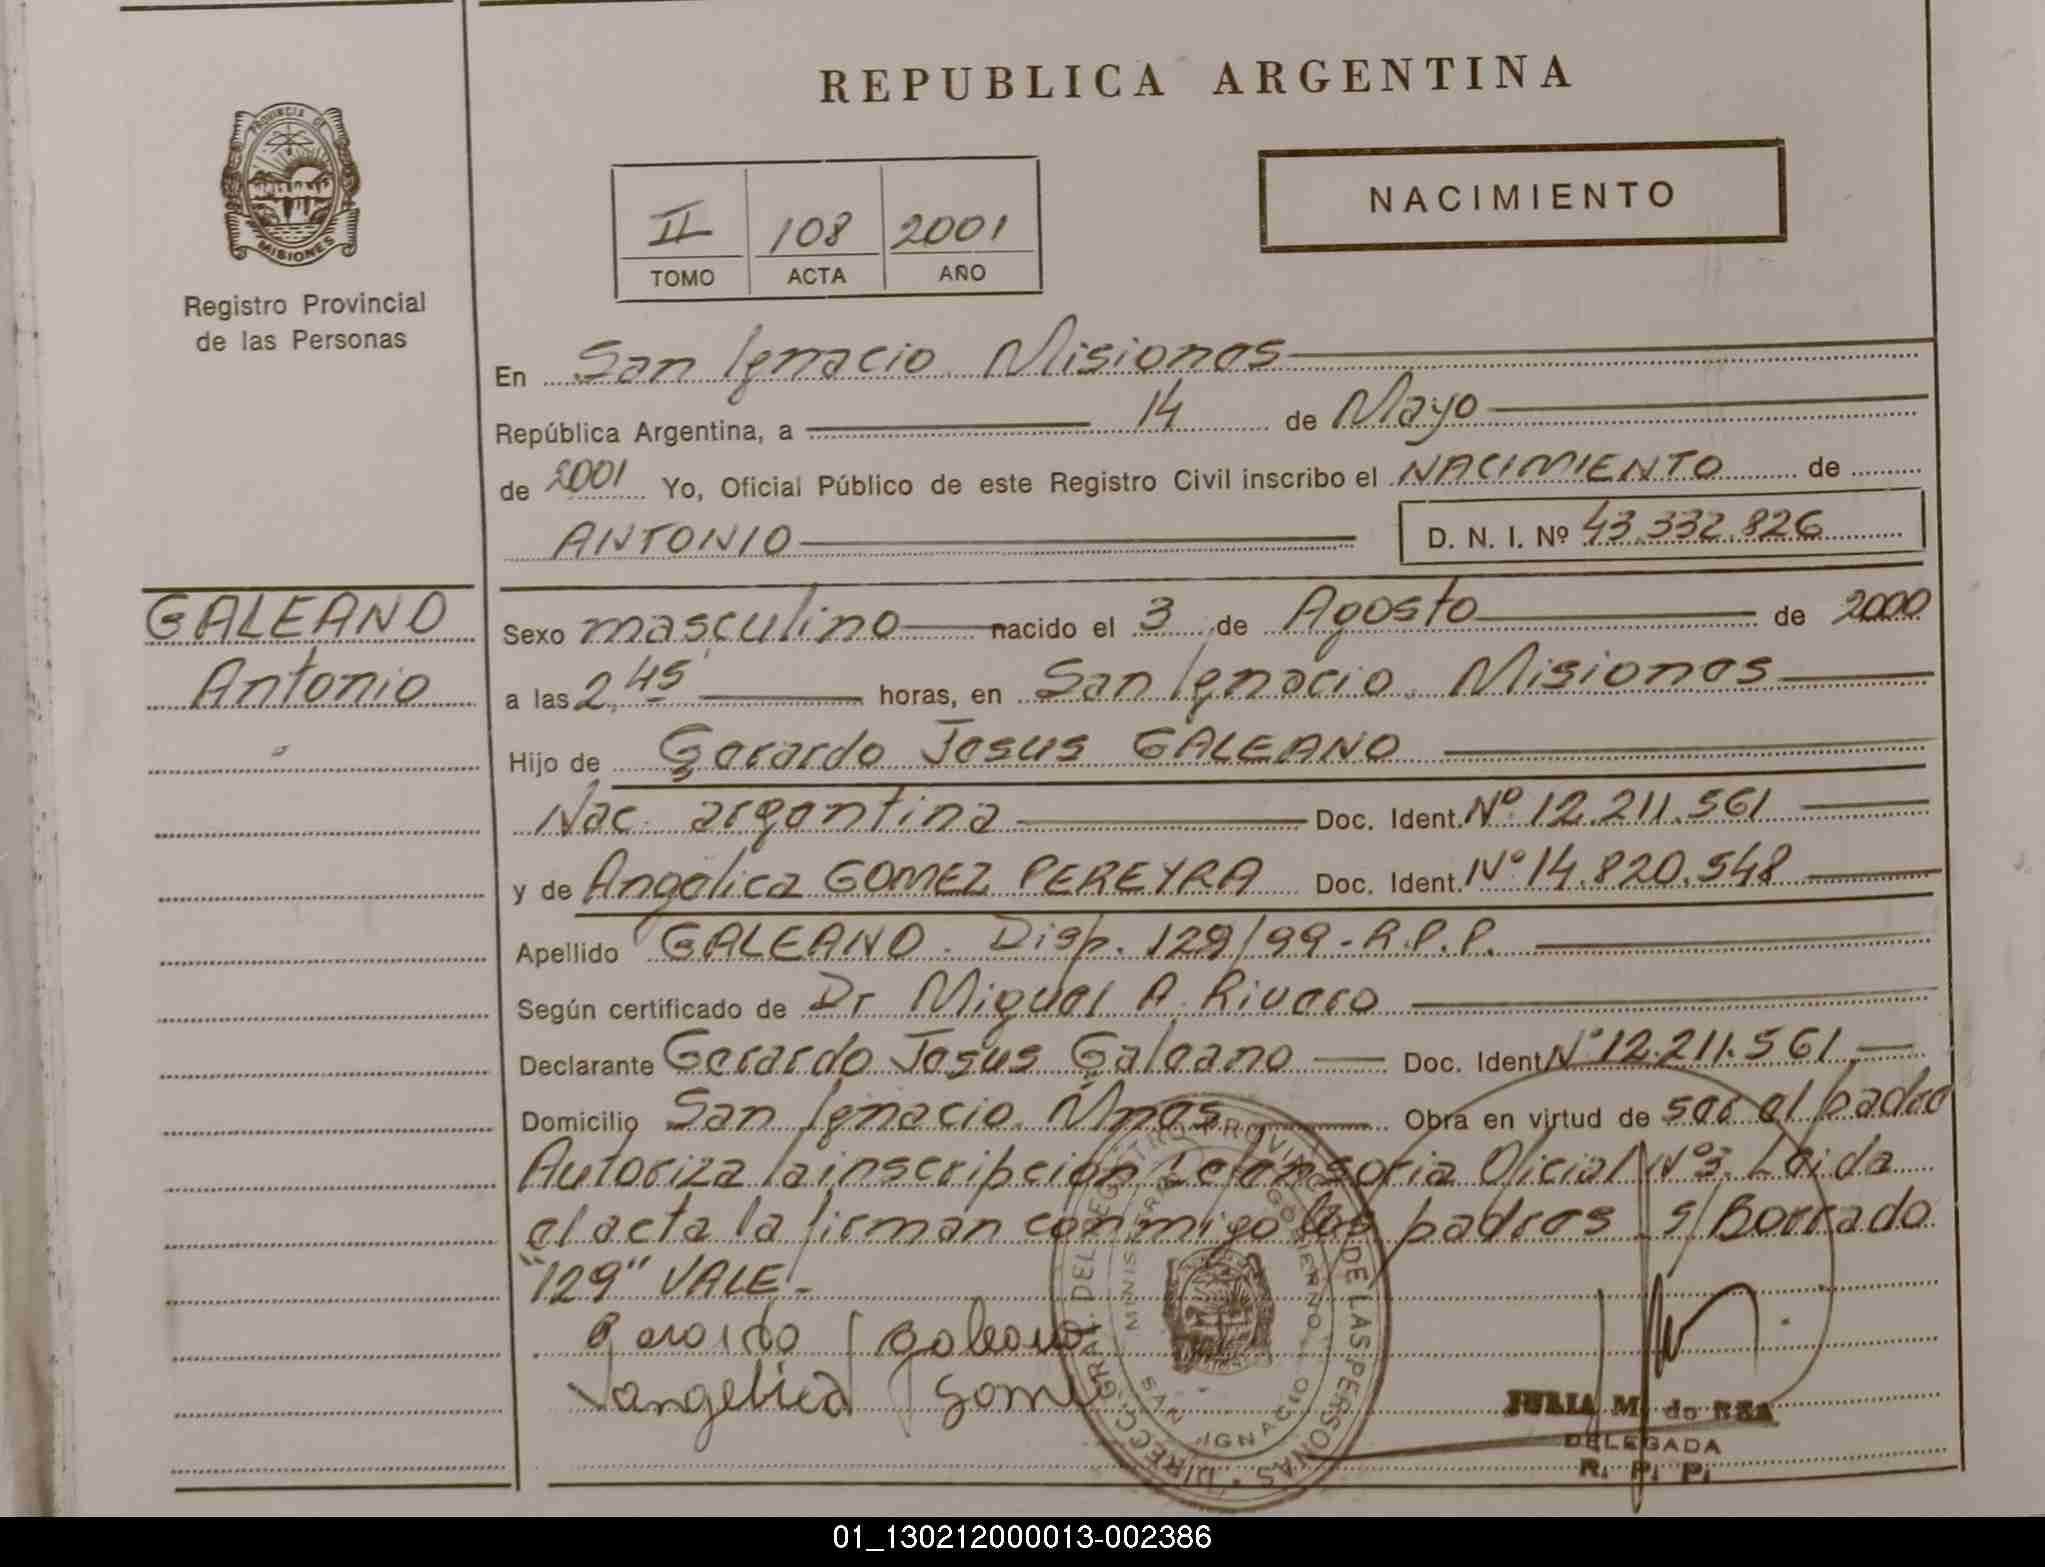 REPUBLICA ARGENTINA
PROVINCIA DE
MISIONES
Registro Provincial
de las Personas
NACIMIENTO
II 108 2001
TOMO ACTA AÑO
En San Ignacio Misiones
República Argentina, a 14 de Mayo
de 2001 Yo, Oficial Público de este Registro Civil inscribo el NACIMIENTO de
ANTONIO D. N. I. Nº 43.332.826
GALEANO
Antonio
Sexo masculino nacido el 3 de Agosto de 2000
a las 2,45 horas, en San Ignacio Misiones
Hijo de Gerardo Jesus GALEANO
Nac. argentina Doc. Ident. Nº 12.211.561
y de Angelica GOMEZ PEREYRA Doc. Ident. Nº 14.820.548
Apellido GALEANO. Disp. 129/99-R.P.P.
Según certificado de Dr Miguel A. Rivero
Declarante Gerardo Jesus Galeano Doc. Ident Nº 12.211.561
Domicilio San Ignacio Mnes Obra en virtud de ser el padre
Autoriza la inscripcion Defensoria Oficial Nº3. Leida
el acta la firman conmigo los padres s/Borrado
"129" VALE.-
Gerardo J galeano
angelica gome
DIRECC. GRAL. DEL REGISTRO PROVINCIAL DE LAS PERSONAS
MINISTERIO GOBIERNO
SAN IGNACIO
JULIA M. do REA
DELEGADA
R. P. P.
01_130212000013-002386